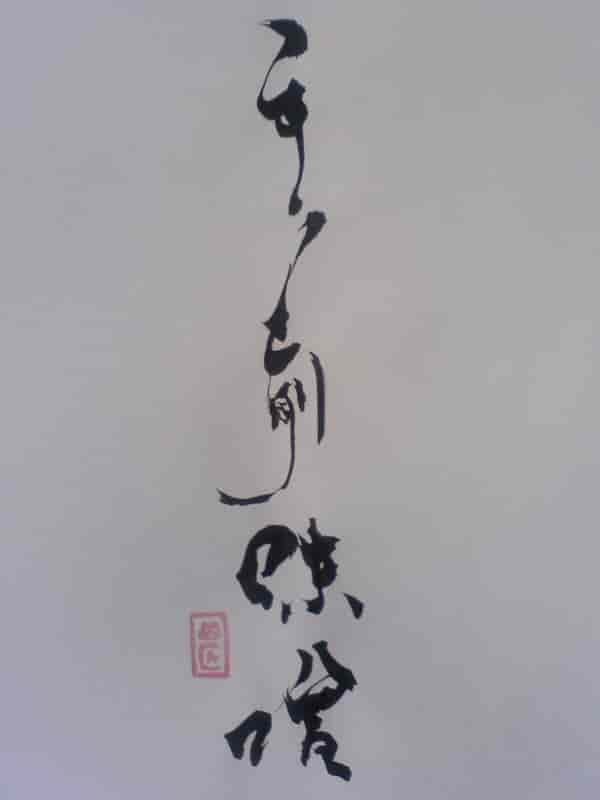 手前味噌